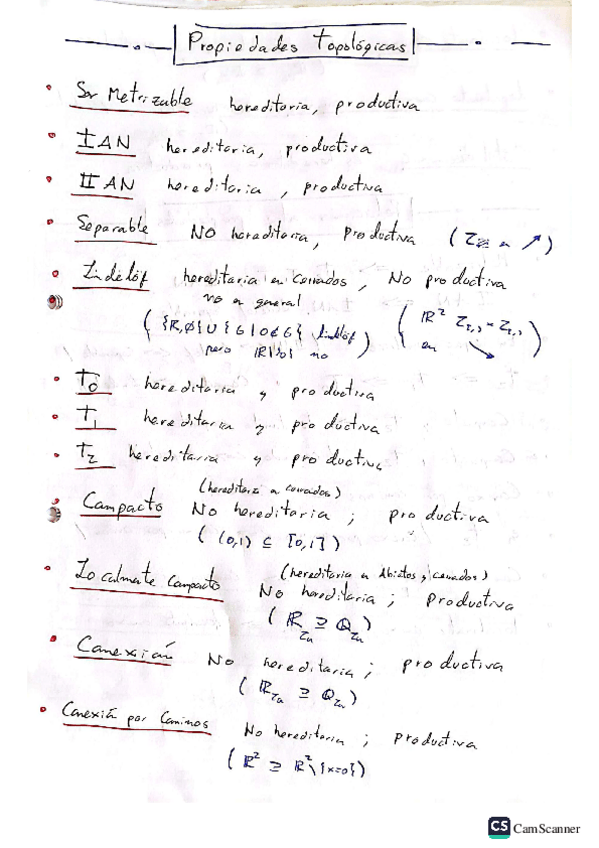 Propiedades Topológicas
Ser Metrizable hereditaria, productiva
I AN hereditaria, productiva
II AN hereditaria, productiva
Separable NO hereditaria, Productiva ( en ↗)
Lindelöf hereditaria en cerrados, No productiva
no en general
( {ℝ,∅} ∪ { G | 0 ∉ G } Lindelöf
pero ℝ\{0} no )
( ℝ² 
en ↘ )
T₀ hereditaria y productiva
T₁ hereditaria y productiva
T₂ hereditaria y productiva
(hereditaria a cerrados)
Compacto No hereditaria ; productiva
( (0,1) ⊆ [0,1] )
(hereditaria a Abiertos y cerrados)
Localmente Compacto No hereditaria ; Productiva
( ℝ_τu ⊇ ℚ_τu )
Conexión No hereditaria ; productiva
( ℝ_τu ⊇ ℚ_τu )
Conexión por Caminos No hereditaria ; Productiva
( ℝ² ⊇ ℝ²\{x=0} )
CS CamScanner